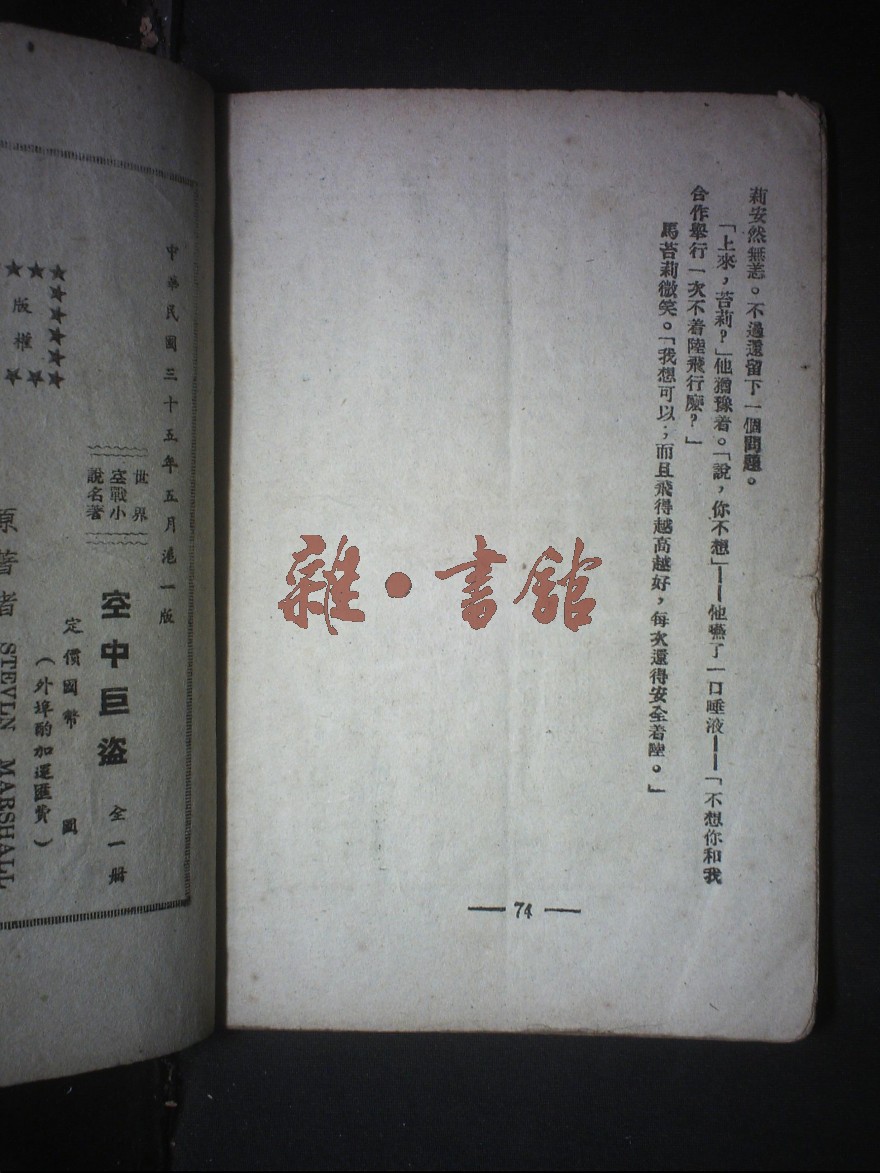 莉安然無恙。不過還留下一個問題。
「上來，苔莉？」他猶豫着。「說，你不想」——他嚥了一口唾液——「不想你和我
合作舉行一次不着陸飛行麽？」
馬苔莉微笑。「我想可以，而且飛得越高越好，每次還得安全着陸。」
— 74 —
雜·書館
中華民國三十五年五月滬一版
世界
空戰小
說名著
空中巨盜 全一册
定價國幣 圓
（外埠酌加運匯費）
原著者 STEVLN MARSHALL
★★★★★★
★版權★